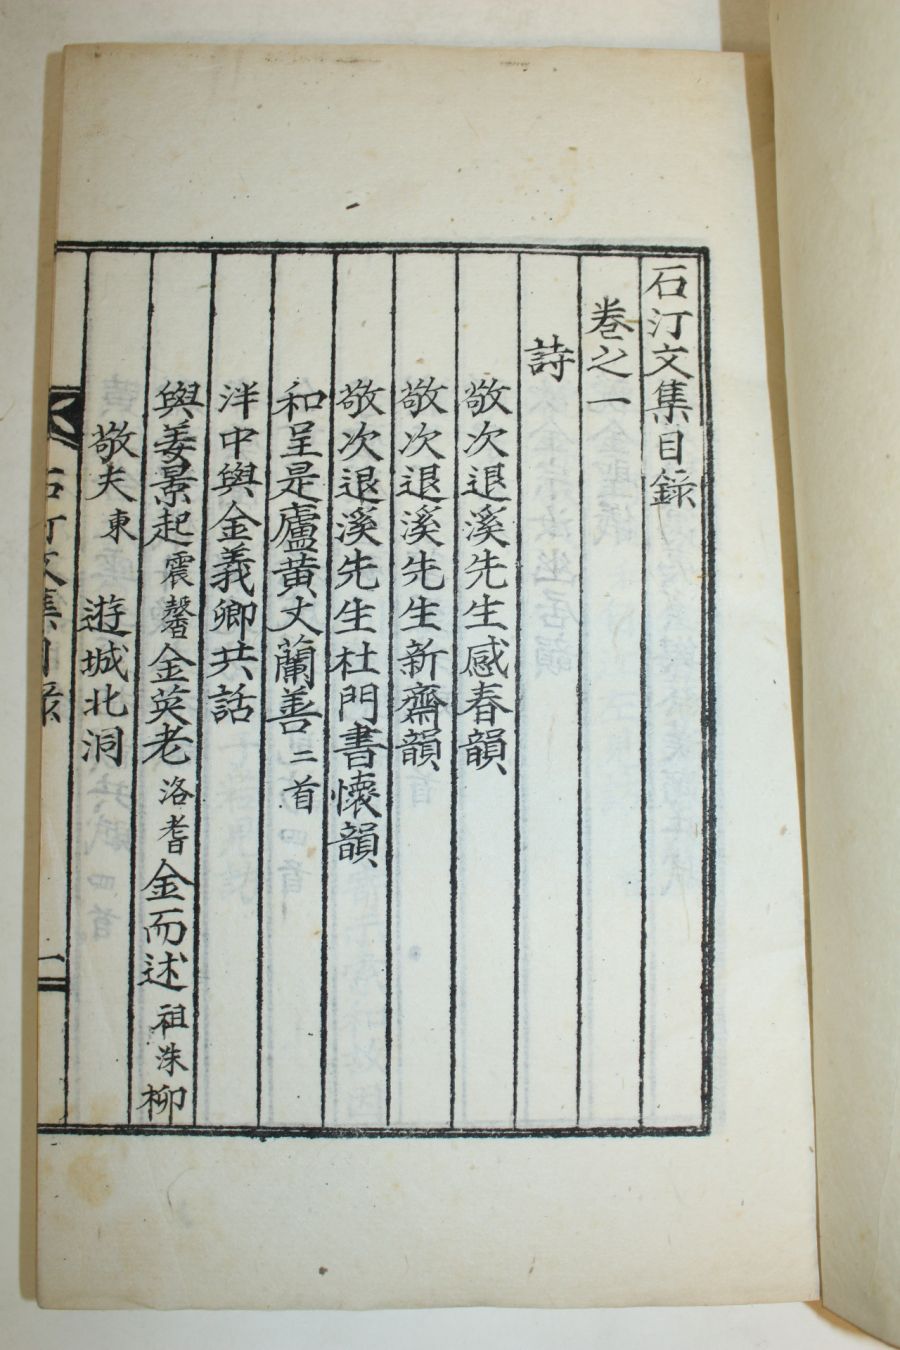 石汀文集目錄
卷之一
詩
敬次退溪先生感春韻
敬次退溪先生新齋韻
敬次退溪先生杜門書懷韻
和呈是廬黃丈蘭善二首
泮中與金義卿共話
與姜景起震馨金英老洛耆金而述祖洙柳
敬夫東 遊城北洞
石汀文集目錄 一